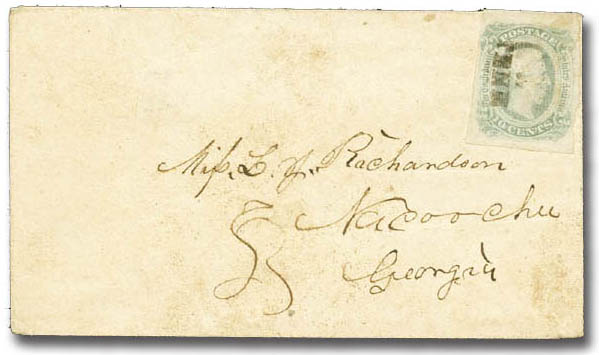 POSTAGE
10 CENTS
Miss. L. J. Richardson
Nacoochee
Georgia